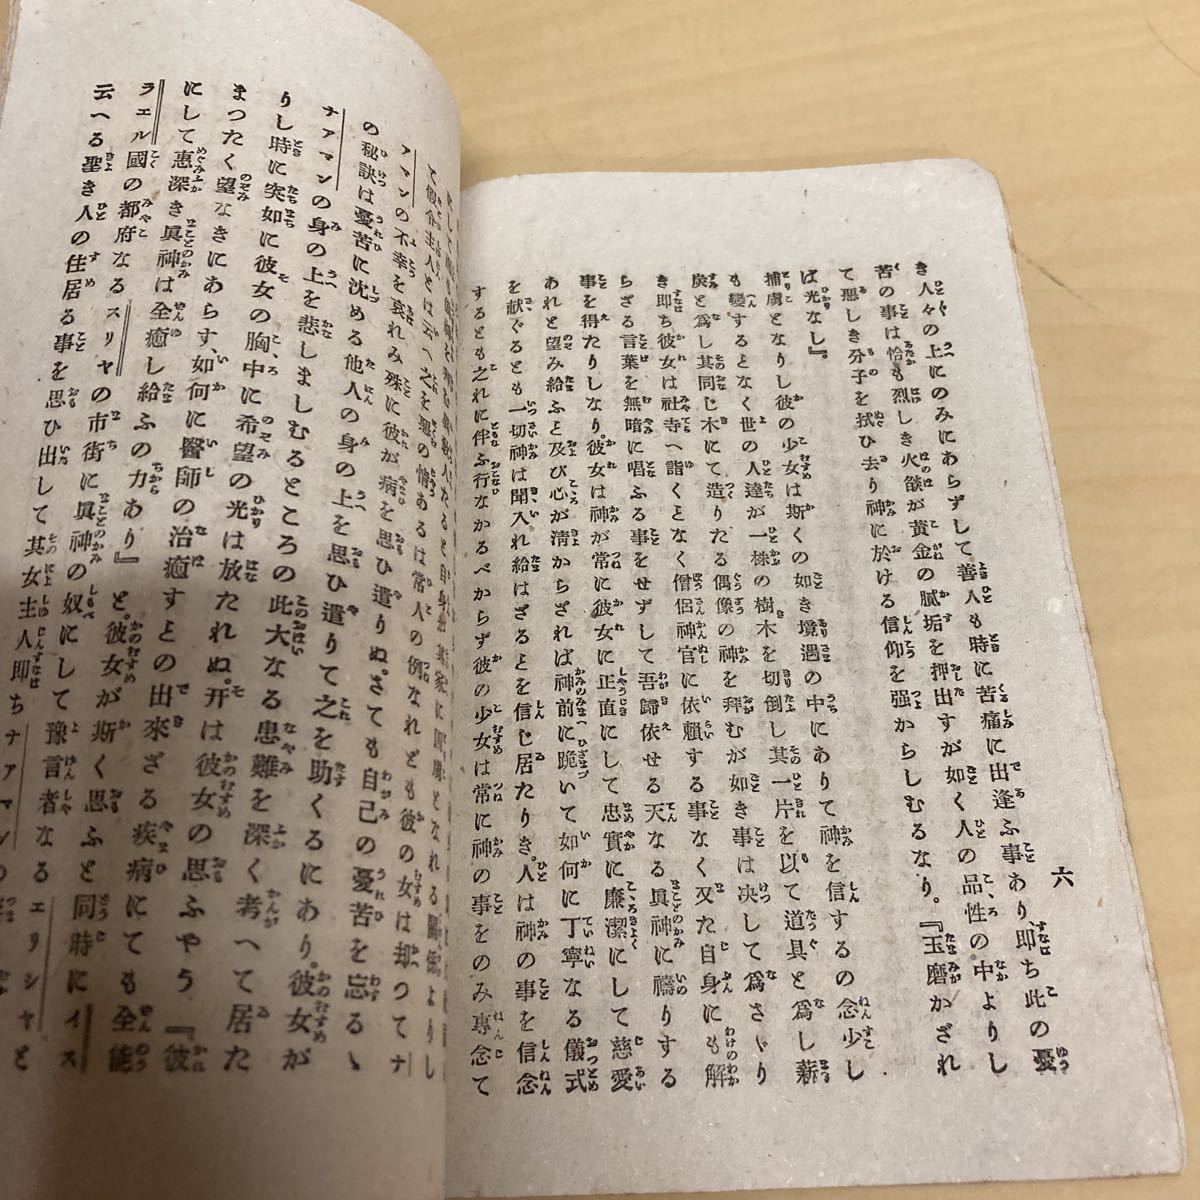 六
き人々の上にのみにあらずして善人も時に苦痛に出逢ふ事あり、即ち此の憂
苦の事は恰も烈しき火燄が黄金の膩垢を押出すが如く人の品性の中よりし
て悪しき分子を拭ひ去り神に於ける信仰を强からしむるなり。『玉磨かざれ
ば光なし』。
捕虜となりし彼の少女は斯くの如き境遇の中にありて神を信するの念少し
も變するとなく世の人達が一株の樹木を切倒し其一片を以て道具と爲し薪
炭と爲し其同じ木にて造りたる偶像の神を拜むが如き事は决して爲さゞり
き即ち彼女は社寺へ詣くとなく僧侶神官に依頼する事なく又た自身にも解
らざる言葉を無暗に唱ふる事をせずして吾歸依せる天なる眞神に禱りする
事を得たりしなり。彼女は神が常に彼女に正直にして忠實に廉潔にして慈愛
あれと望み給ふと及び心が清からざれば神前に跪いて如何に丁寧なる儀式
を献ぐるとも一切神は聞入れ給はざるとを信じ居たりき。人は神の事を信念
するとも之れに伴ふ行なかるべからず彼の少女は常に神の事をのみ專念て
アマンの不幸を哀れみ殊に彼が病を思ひ遣りぬ。さても自己の憂苦を忘るゝ
の秘訣は憂苦に沈める他人の身の上を思ひ遣りて之を助くるにあり。彼女が
ナアマンの身の上を悲しましむるところの此大なる患難を深く考へて居た
りし時に突如に彼女の胸中に希望の光は放たれぬ。开は彼女の思ふやう『彼
まつたく望なきにあらす、如何に醫師の治癒すとの出來ざる疾病にても全能
にして惠深き眞神は全癒し給ふの力あり』と。彼女が斯く思ふと同時にイス
ラエル國の都府なるスリヤの市街に眞神の奴にして豫言者なるエリシヤと
云へる聖き人の住居る事を思ひ出して其女主人即ちナアマンの